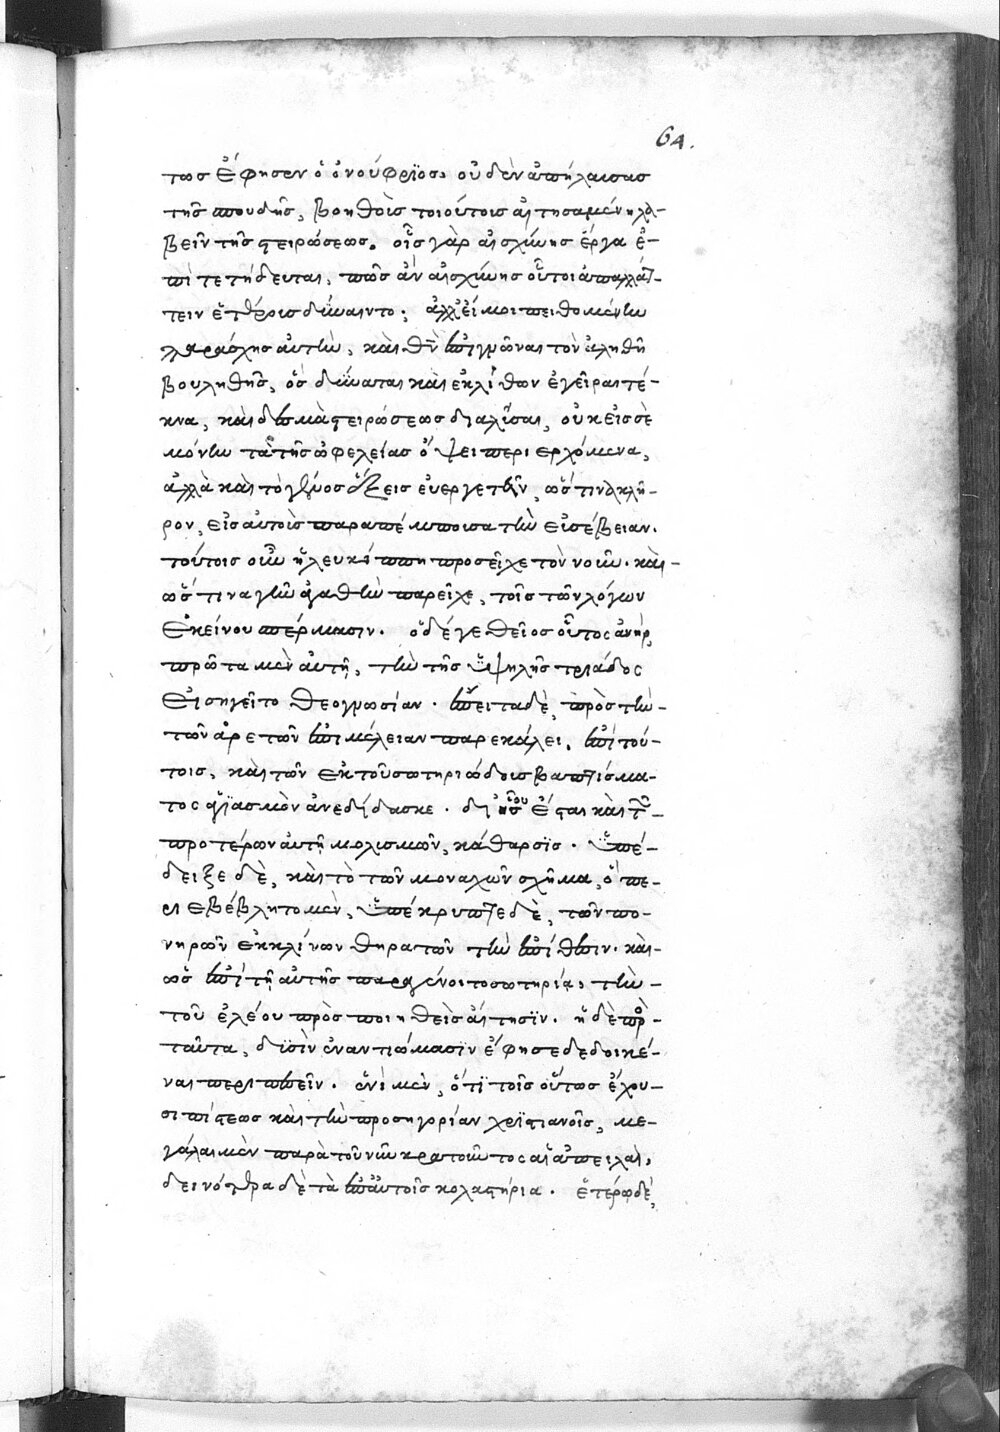 64.
τως ἔφησεν ὁ ὀνούφριος, οὐδὲν ἀπήλαυσας
τῆς σπουδῆς, βοηθοῖς τοιούτοις αἰτησαμένη λα-
βεῖν τῆς στειρώσεως. οἷς γὰρ αἰσχύνης ἔργα ἐ-
πιτετήδευται, πῶς ἂν αἰσχύνης οὗτοι ἀπαλλάτ-
τειν ἑτέρους δύναιντο; ἀλλ' εἴ μοι πειθομένην
παράσχης αὐτὴν, καὶ θεὸν ἐπιγνῶναι τὸν ἀληθῆ
βουληθῆς, ὃς δύναται καὶ ἐκ λίθων ἐγεῖραι τέ-
κνα, καὶ δεσμὰ στειρώσεως διαλῦσαι, οὐκ εἰς σὲ
μόνην τὰ τῆς ὠφελείας ὄψει περιερχόμενα,
ἀλλὰ καὶ τὸ γένος ἕξεις εὐεργετεῖν, ὥς τινα κλῆ-
ρον, εἰς αὐτοὺς παραπέμπουσα τὴν εὐσέβειαν.
τούτοις οὖν ἡ λευκίππη προσεῖχε τὸν νοῦν. καὶ
ὥς τινα γῆν ἀγαθὴν παρεῖχε, τοῖς τῶν λόγων
ἐκείνου σπέρμασιν. ὁ δέ γε θεῖος οὗτος ἀνήρ,
πρῶτα μὲν αὐτῇ, τὴν τῆς ὑψηλῆς τριάδος
εἰσηγεῖτο θεογνωσίαν. ἔπειτα δὲ, πρὸς τὴν
τῶν ἀρετῶν ἐπιμέλειαν παρεκάλει. ἐπὶ τού-
τοις, καὶ τῶν ἐκ τοῦ σωτηριώδους βαπτίσμα-
τος ἁγιασμὸν ἀνεδίδασκε. δι' οὗ ἔσται καὶ τῶν
προτέρων αὐτῇ μολυσμῶν, κάθαρσις. ὑπέ-
δειξε δὲ, καὶ τὸ τῶν μοναχῶν σχῆμα, ὃ πε-
ριεβέβλητο μὲν, ὑπέκρυπτε δὲ, τῶν πο-
νηρῶν ἐκκλίνων θηρατῶν τὴν ἐπίθεσιν. καὶ
ὡς ἐπὶ τῇ αὐτῆς παραγένοιτο σωτηρίᾳ, τὴν
τοῦ ἐλέου προσποιηθεὶς αἴτησιν. ἡ δὲ πρὸς
ταῦτα, δυσὶν ἐναντιώμασιν ἔφησε δεδοικέ-
ναι περιπεσεῖν. ἑνὶ μὲν, ὅτι τοῖς οὕτως ἔχου-
σι πίστεως καὶ τὴν προσηγορίαν χριστιανοῖς, με-
γάλαι μὲν παρὰ τοῦ νῦν κρατοῦντος αἱ ἀπειλαὶ,
δεινότερα δὲ τὰ ἐπ' αὐτοῖς κολαστήρια. ἑτέρῳ δέ,